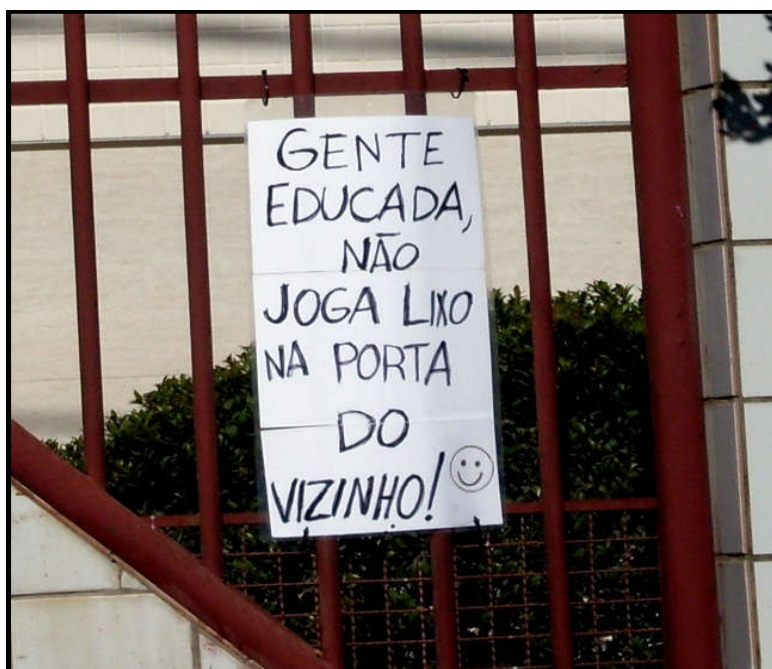 GENTE
EDUCADA,
NÃO
JOGA LIXO
NA PORTA
DO
VIZINHO!